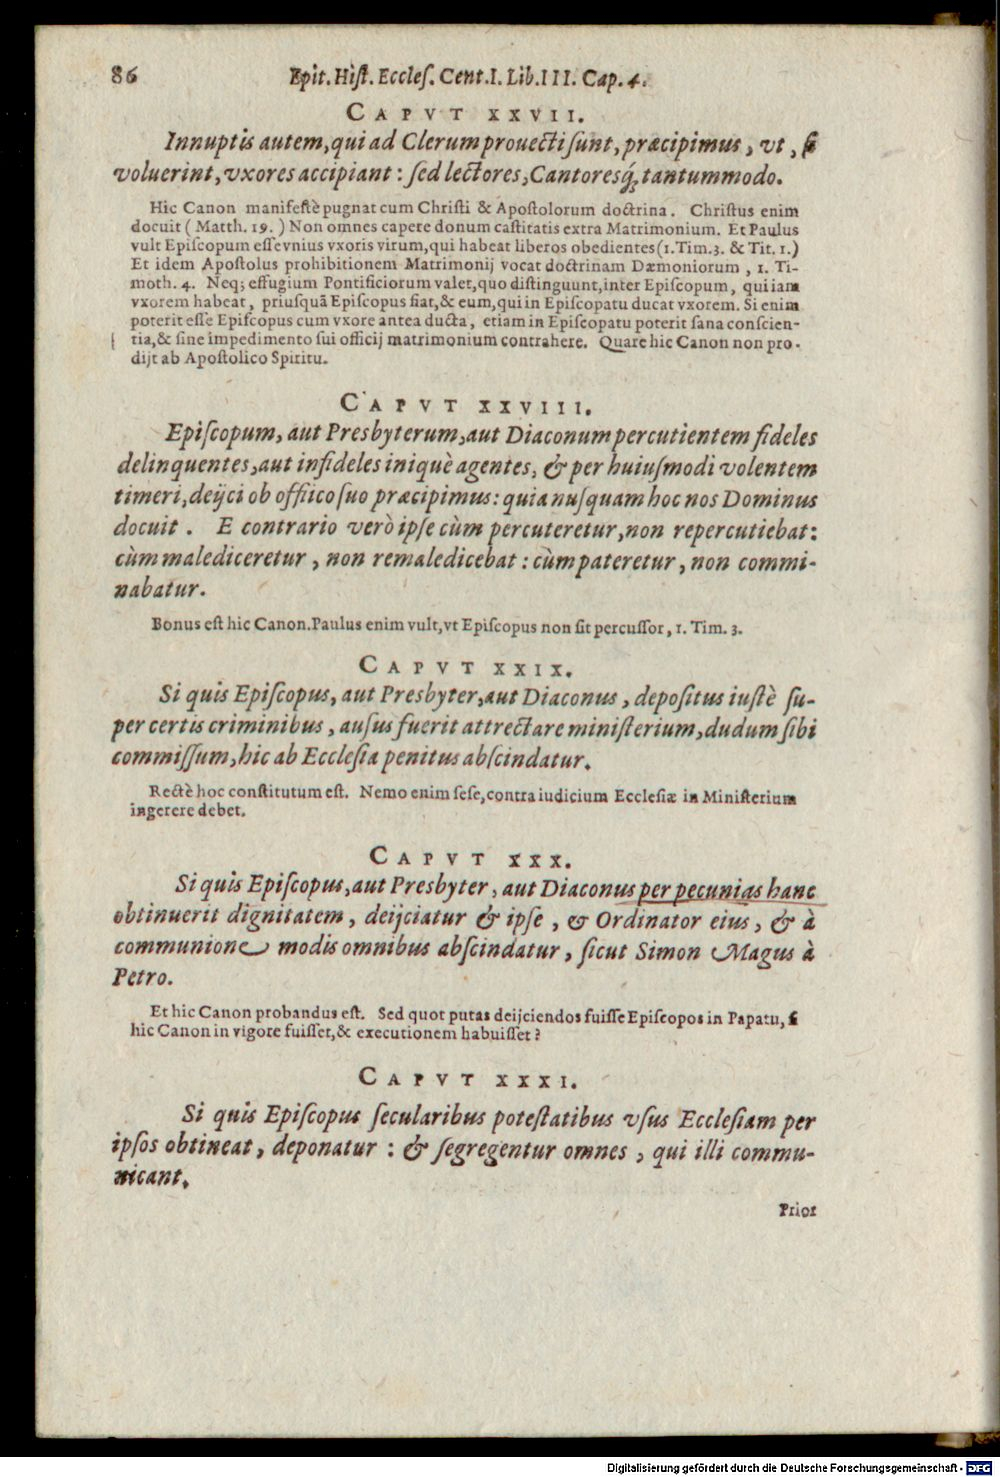 86 Epit. Hist. Eccles. Cent. I. Lib. III. Cap. 4.
CAPVT XXVII.
Innuptis autem, qui ad Clerum prouecti sunt, præcipimus, vt, si
voluerint, vxores accipiant: sed lectores, Cantoresq́; tantummodo.
Hic Canon manifestè pugnat cum Christi & Apostolorum doctrina. Christus enim
docuit (Matth. 19.) Non omnes capere donum castitatis extra Matrimonium. Et Paulus
vult Episcopum esse vnius vxoris virum, qui habeat liberos obedientes (1. Tim. 3. & Tit. 1.)
Et idem Apostolus prohibitionem Matrimonij vocat doctrinam Dæmoniorum, 1. Ti-
moth. 4. Neq; effugium Pontificiorum valet, quo distinguunt, inter Episcopum, qui iam
vxorem habeat, priusquã Episcopus fiat, & eum, qui in Episcopatu ducat vxorem. Si enim
poterit esse Episcopus cum vxore antea ducta, etiam in Episcopatu poterit sana conscien-
tia, & sine impedimento sui officij matrimonium contrahere. Quare hic Canon non pro-
dijt ab Apostolico Spiritu.
CAPVT XXVIII.
Episcopum, aut Presbyterum, aut Diaconum percutientem fideles
delinquentes, aut infideles iniquè agentes, & per huiusmodi volentem
timeri, deijci ob offiico suo præcipimus: quia nusquam hoc nos Dominus
docuit. E contrario verò ipse cùm percuteretur, non repercutiebat:
cùm malediceretur, non remaledicebat: cùm pateretur, non commi-
nabatur.
Bonus est hic Canon. Paulus enim vult, vt Episcopus non sit percussor, 1. Tim. 3.
CAPVT XXIX.
Si quis Episcopus, aut Presbyter, aut Diaconus, depositus iustè su-
per certis criminibus, ausus fuerit attrectare ministerium, dudum sibi
commissum, hic ab Ecclesia penitus abscindatur.
Rectè hoc constitutum est. Nemo enim sese, contra iudicium Ecclesiæ in Ministerium
ingerere debet.
CAPVT XXX.
Si quis Episcopus, aut Presbyter, aut Diaconus per pecunias hanc
obtinuerit dignitatem, deijciatur & ipse, & Ordinator eius, & à
communione modis omnibus abscindatur, sicut Simon Magus à
Petro.
Et hic Canon probandus est. Sed quot putas deijciendos fuisse Episcopos in Papatu, si
hic Canon in vigore fuisset, & executionem habuisset?
CAPVT XXXI.
Si quis Episcopus secularibus potestatibus vsus Ecclesiam per
ipsos obtineat, deponatur: & segregentur omnes, qui illi commu-
nicant.
Prior
Digitalisierung gefördert durch die Deutsche Forschungsgemeinschaft - DFG